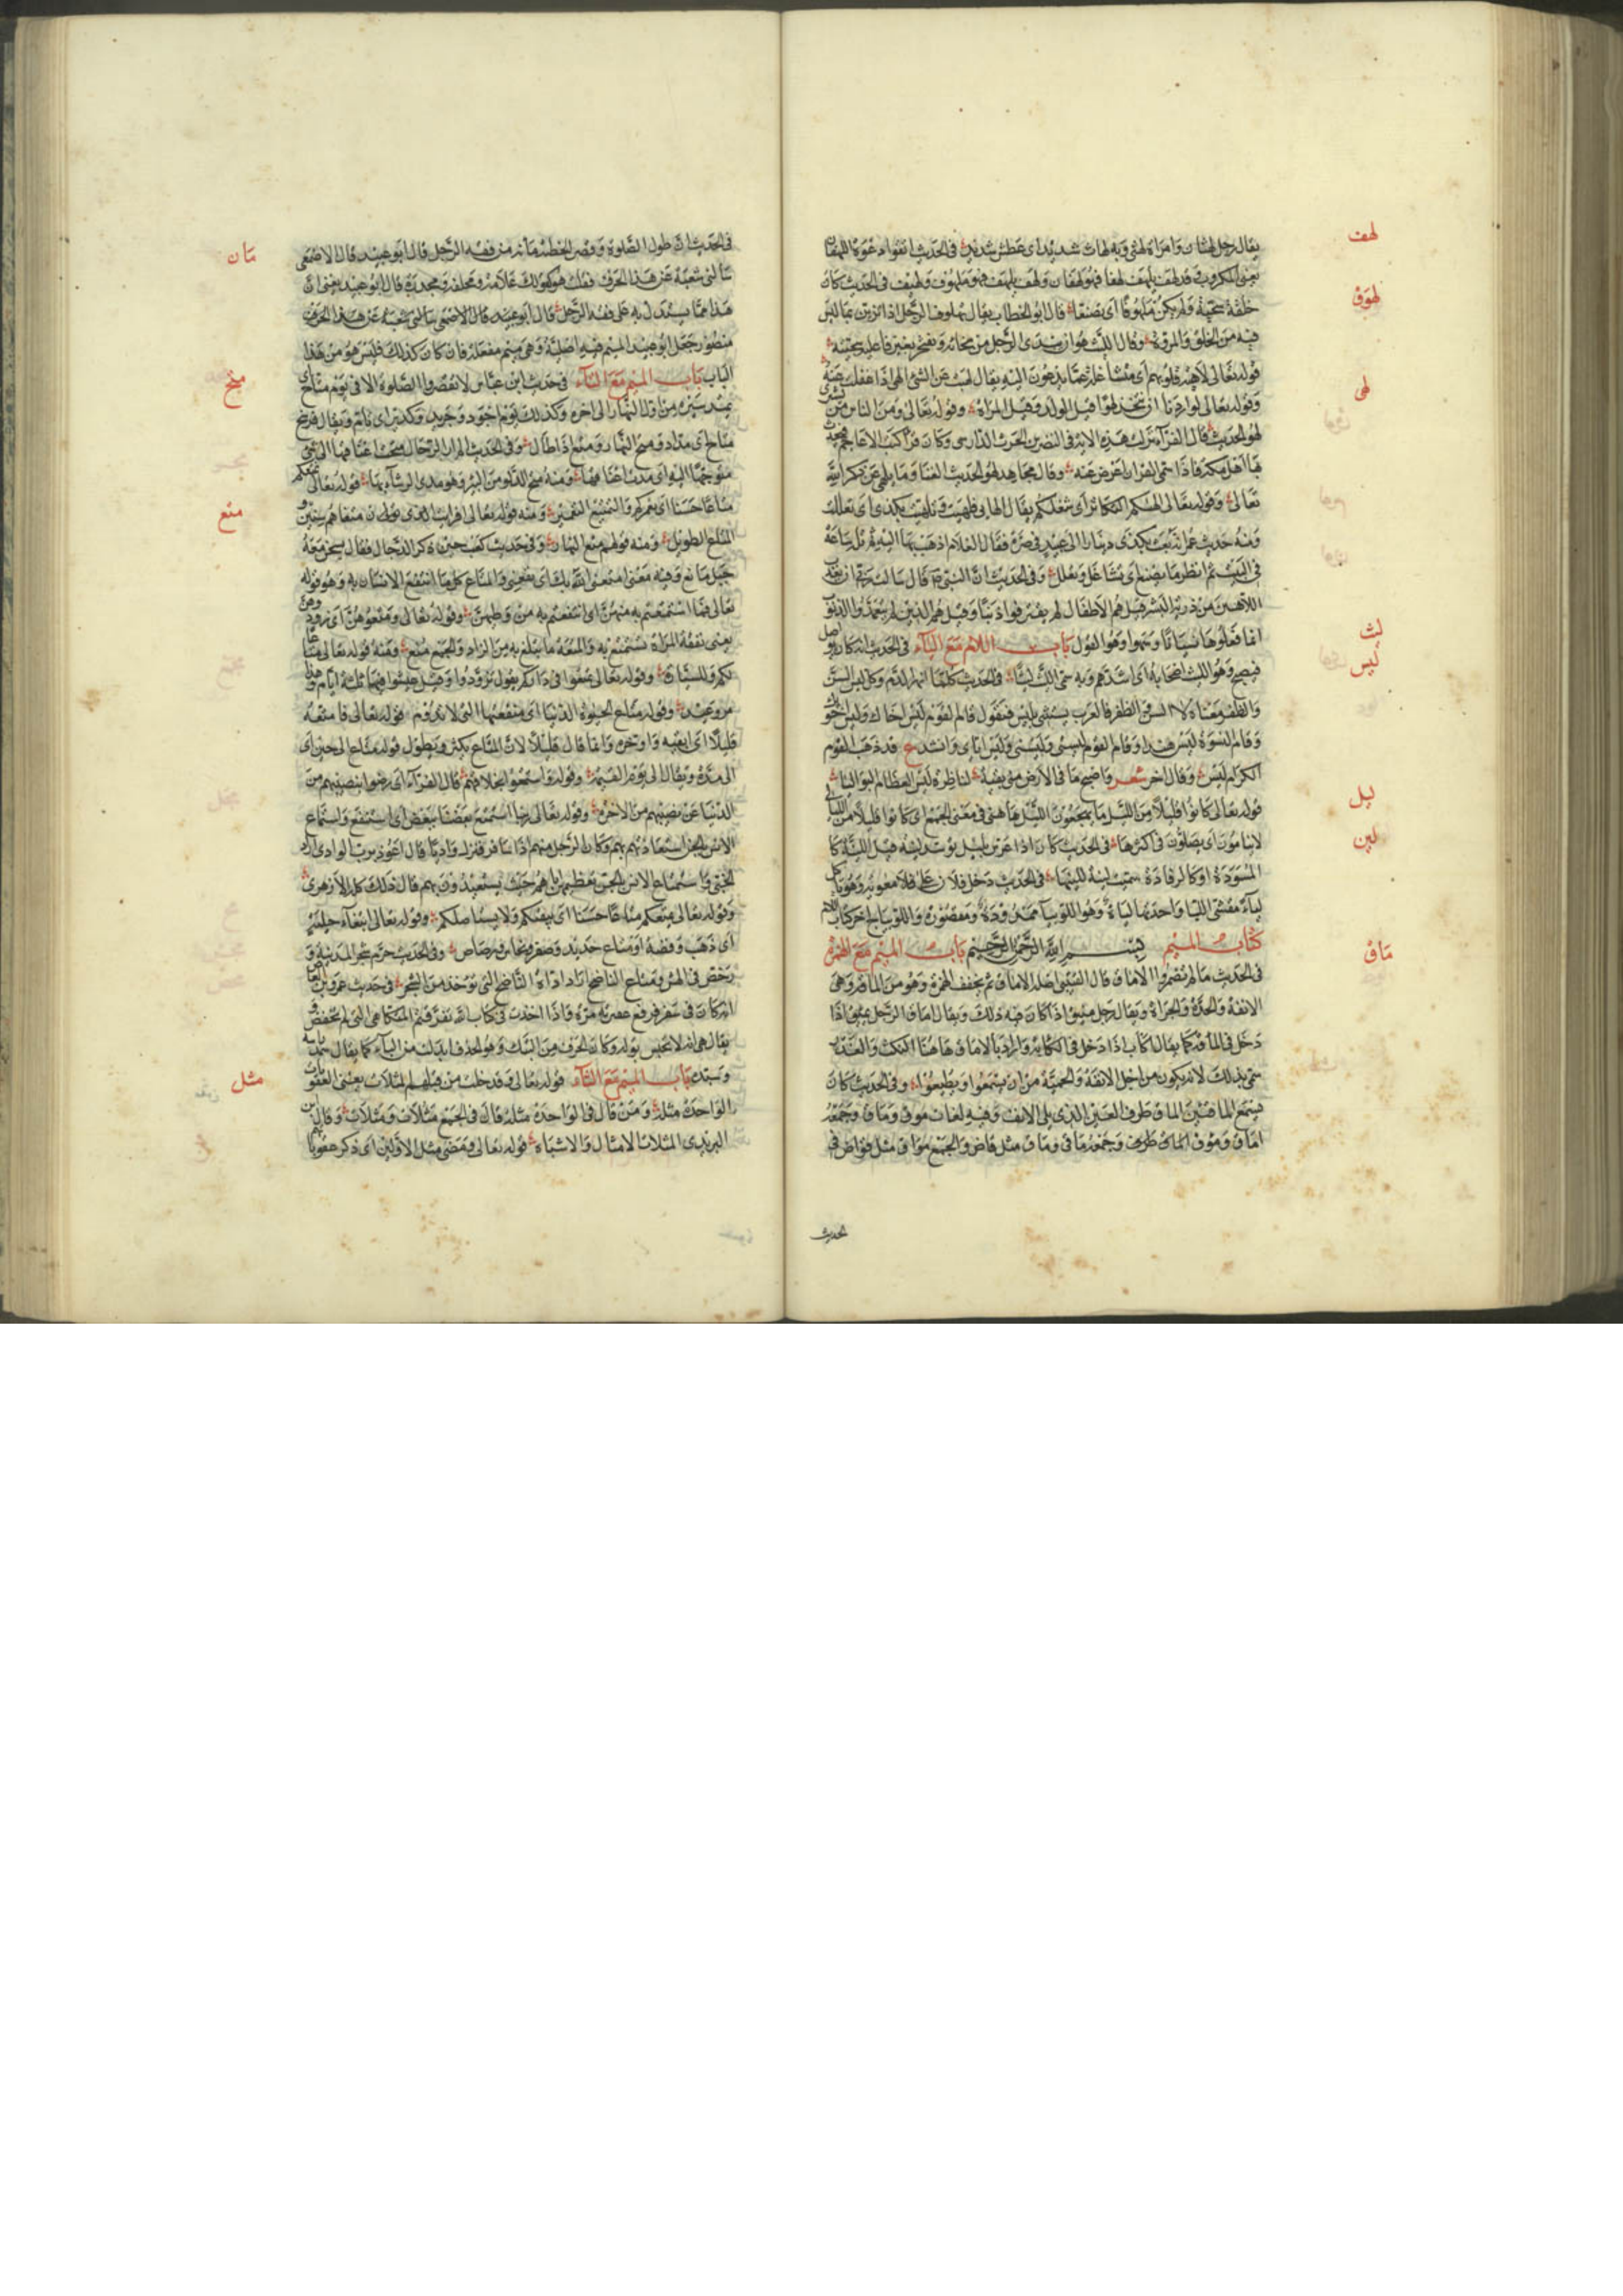 يقال رجل لهثان وامراة لهثى وبه لهاث شديد اى عطش شديد في الحديث اتقوا دعوة اللهفان
يعنى المكروب قد لهف يلهف لهفا فهو لهفان ولهف يلهف فهو ملهوف ولهيف في الحديث كان
خلقه سجية ولم يكن تلهوقا اى تصنعا قال ابو الخطاب يقال تلهوق الرجل اذا تزين بما ليس
فيه من الخلق والمروة وقال الليث هو ان يبدى الرجل من سخائه ويفتخر بغير ما عليه سجيته
قوله تعالى لاهية قلوبهم اى متشاغلة عما يدعون اليه يقال لهيت عن الشئ الهى اذا غفلت عنه
وقوله تعالى لو اردنا ان نتخذ لهوا قيل الولد وقيل المراة وقوله تعالى ومن الناس من يشترى
لهو الحديث قال الفراء نزلت هذه الاية في النضر بن الحرث الدارى وكان قرأ كتب الاعاجم فيحدث
بها اهل مكة فاذا سمع القران اعرض عنه وقال مجاهد لهو الحديث الغنا وما يلهى عن ذكر الله
تعالى وقوله تعالى الهيكم التكاثر اى شغلكم يقال الهانى فلهيت وتلهيت بكذى اى تعللت
ومنه حديث عمر انه بعث بكذى دينارا الى ابى عبيدة في صرة فقال للغلام اذهب بها اليه ثم تله ساعة
في البيت ثم انظر ما يصنع اى تشاغل وتعلل وفي الحديث ان النبى قال سالت ربى ان لا يعذب
اللاهين من ذرية البشر قيل هم الاطفال لم يقترفوا ذنبا وقيل هم الذين لم يتعمدوا الذنوب
انما فعلوها نسيانا وسهوا وهو القول باب اللام مع الياء في الحديث انه كان يواصل
فيصبح وهو اليث اصحابه اى اشدهم وبه سمى الليث ليثا في الحديث كل ما انهر الدم وكل ليس السن
والظفر معناه الا السن والظفر فالعرب يستثنى بليس فتقول قام القوم ليس اخاك وليس اخويك
وقام النسوة ليس هندا وقام القوم ليسى وليسنى وليس اياى وانشد ع قد ذهب القوم
الكرام ليسى وقال اخر شعر
قوله تعالى كانوا قليلا من الليل ما يهجعون الليل هاهنا في معنى الجمع اى كانوا قليلا من الليالى
لا ينامون اى يصلون في اكثرها في الحديث كان اذا عرس بليل توسد لينة قيل اللينة كا
لمسورة او كالرفادة سميت لينة للينها في الحديث دخل فلان على معوية وهو ياكل
لياء مقشى الليا واحدتها لياة
كتاب الميم بسم الله الرحمن الرحيم باب الميم مع الهمزة
في الحديث ما لم تضمروا الاماق قال القتيبى اصله الاماق ثم يخفف الهمزة وهو من الماقة وهى
الانفة والحدة والجراة ويقال رجل مئق اذا كان فيه ذلك ويقال اماق الرجل يمئق اذا
دخل في الماقة كما يقال اكأب اذا دخل في الكابة واراد بالاماق هاهنا النكث والغدر
سمى بذلك لانه يكون من اجل الانفة والحمية من ان يسمعوا ويطيعوا وفي الحديث كان
يمسح الماقيين الماق طرف العين الذى يلى الانف وفيه لغات موق وماق وجمعه
اماق وموق الماق طرف وجمعه ماقى وماق مثل قاض والجمع مواق مثل قواض في
الحديث
لهف
لهوق
لهى
ليث
ليس
ليل
لين
ماق
في الحديث ان طول الصلوة وقصر الخطبة مأنة من فقه الرجل قال ابو عبيد قال الاصمعى
سألنى شعبة عن هذا الحرف فقلت هو كقولك علامة ومخلقة ومجدرة قال ابو عبيد يعنى ان
هذا مما يستدل به على فقه الرجل قال ابو عبيد قال الاصمعى سألنى شعبة عن هذا الحرف
منظور جعل ابو عبيد الميم فيه اصلية وهى ميم مفعلة فان كان كذلك فليس هو من هذا
الباب باب الميم مع التاء في حديث ابن عباس لا تقصروا الصلوة الا في يوم متاح اى
يمتد سيره من اول النهار الى اخره
متاح اى مداد ومتح النهار ومتع اذا طال وفي الحديث
متوجهة اليه اى مدت اعناقها ومنه متح الدلو من البئر وهو مدى الرشاء بها قوله تعالى يمتعكم
متاعا حسنا اى يعمركم والتمتيع التعمير ومنه قوله تعالى افرايت
الماتع الطويل ومنه قولهم متع النهار وفي حديث كعب حين ذكر الدجال فقال يسخر معه
جبل ماتع وفيه معنى امتعنى الله بك اى نفعنى والمتاع كل ما انتفع الانسان به وهو قوله
تعالى فما استمتعتم به منهن اى انتفعتم به من وطيهن وقوله تعالى ومتعوهن اى زودوهن
يعنى نفقة المراة تستمتع به والمتعة ما يتبلغ به من الزاد والجمع متع ومنه قوله تعالى متاعا
لكم وللسيارة وقوله تعالى تمتعوا في داركم يقول تزودوا وقيل عيشوا فيها ثلثة ايام وهذا
مر وعيد وقوله متاع الحيوة الدنيا اى منفعتها التى لا تدوم قوله تعالى فامتعه
قليلا اى ابقيه واوخره وانما قال قليلا لان المتاع يكثر ويطول قوله متاع الى حين اى
الى مدة ويقال الى يوم القيمة وقوله فاستمتعوا بخلاقهم قال الفراء اى رضوا بنصيبهم من
الدنيا عن نصيبهم من الاخرة وقوله تعالى ربنا استمتع بعضنا ببعض اى استنفع واستمتاع
الانس بالجن استعاذتهم بهم وكان الرجل منهم اذا سافر فنزل واديا قال اعوذ برب الوادى اراد
الجنى واستمتاع الانس بالجن تعظيمهم اياهم حيث يستعيذون بهم قال ذلك كله الازهرى
وقوله تعالى يمتعكم متاعا حسنا اى يبقيكم ولا يستاصلكم وقوله تعالى ابتغاء حلية
اى ذهب وفضة او متاع حديد وصفر ونحاس ورصاص وفي الحديث حرم شجر المدينة و
رخص في الهش ومتاع الناضح اراد اداة الناضح التى توخذ من الشجر في حديث عمرو بن العاص
انه كان في سفر فرفع عقيرته
يقال هى التى لا تحبس بوله وكان الحرف من البتك وهو الحذف ابدلت من الباء كما يقال سمد راسه
وسبد باب الميم مع الثاء قوله تعالى وقد خلت من قبلهم المثلات يعنى العقوبات
الواحدة مثلة ومن قال في الواحدة مثلة قال في الجمع مثلات ومثلات وقال ابن
اليزيدى المثلات الامثال والاشباه قوله تعالى ومضى مثل الاولين اى ذكر عقوباتهم
مان
متح
متع
مثل